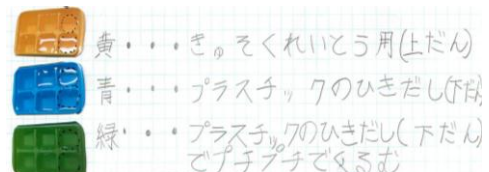 黄・・・きゅうそくれいとう用(上だん)
青・・・プラスチックのひきだし(下だん)
緑・・・プラスチックのひきだし(下だん)
でプチプチでくるむ